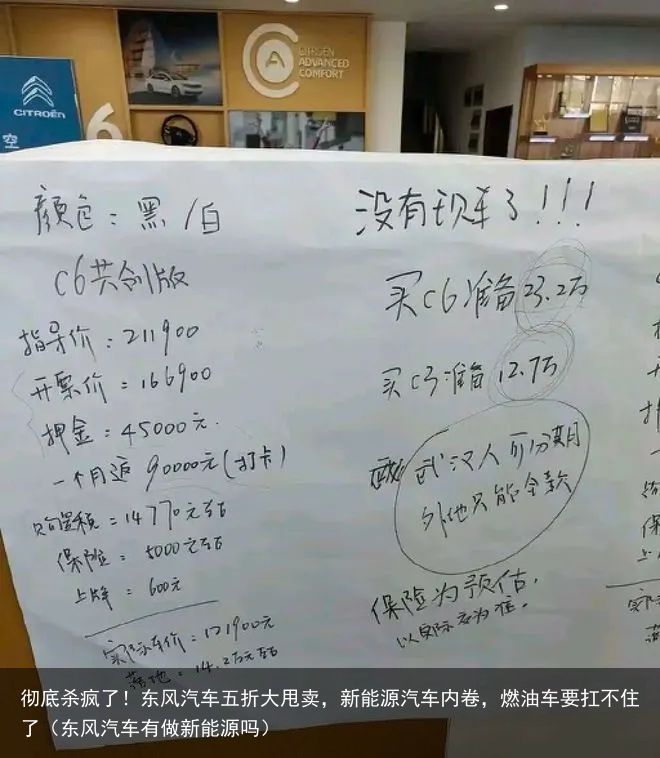 CITROËN
ADVANCED
COMFORT
CITROËN
空
6
颜色：黑/白
C6共创版
指导价：211900
开票价：166900
押金：45000元.
一个月返 90000元(打卡)
购置税=14770元左右
保险：5000元左右
上牌：600元
实际车价：121900元
落地：14.2万元左右
没有现车了!!!
买C6准备23.2万
买C3准备12.7万
武汉人可分期
外地只能全款
保险为预估.
以实际交为准.
彻底杀疯了！东风汽车五折大甩卖，新能源汽车内卷，燃油车要扛不住
了（东风汽车有做新能源吗）